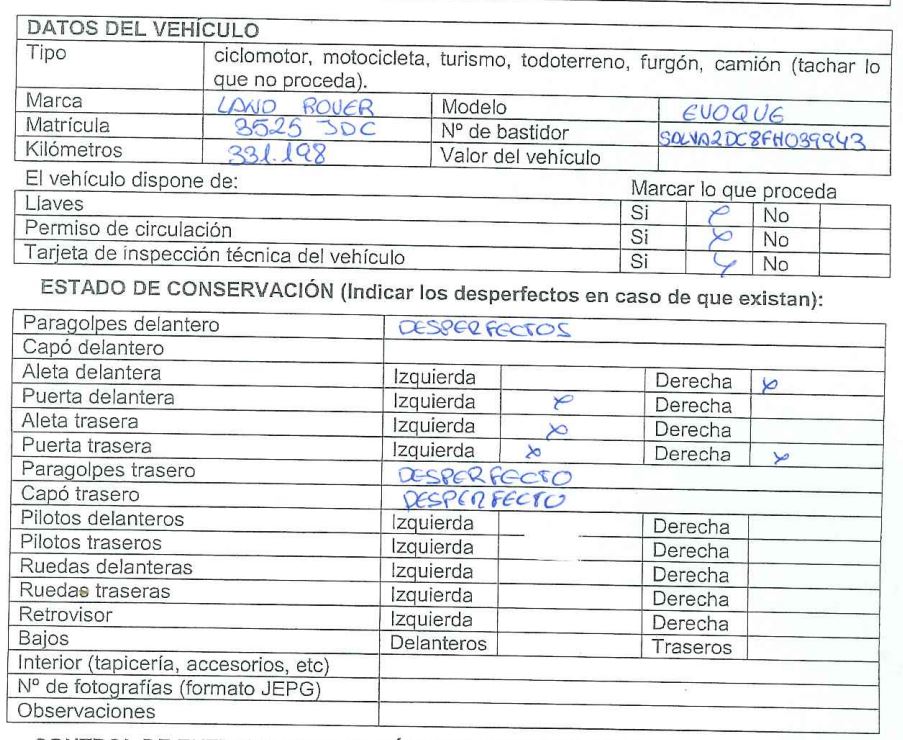 DATOS DEL VEHÍCULO
Tipo ciclomotor, motocicleta, turismo, todoterreno, furgón, camión (tachar lo
que no proceda).
Marca LAND ROVER Modelo EVOQUE
Matrícula 3525 JDC Nº de bastidor SALVA2DC8FH039943
Kilómetros 331.198 Valor del vehículo
El vehículo dispone de: Marcar lo que proceda
Llaves Si x No
Permiso de circulación Si x No
Tarjeta de inspección técnica del vehículo Si x No
ESTADO DE CONSERVACIÓN (Indicar los desperfectos en caso de que existan):
Paragolpes delantero DESPERFECTOS
Capó delantero
Aleta delantera Izquierda Derecha x
Puerta delantera Izquierda x Derecha
Aleta trasera Izquierda x Derecha
Puerta trasera Izquierda x Derecha x
Paragolpes trasero DESPERFECTO
Capó trasero DESPERFECTO
Pilotos delanteros Izquierda Derecha
Pilotos traseros Izquierda Derecha
Ruedas delanteras Izquierda Derecha
Ruedas traseras Izquierda Derecha
Retrovisor Izquierda Derecha
Bajos Delanteros Traseros
Interior (tapicería, accesorios, etc)
Nº de fotografías (formato JEPG)
Observaciones